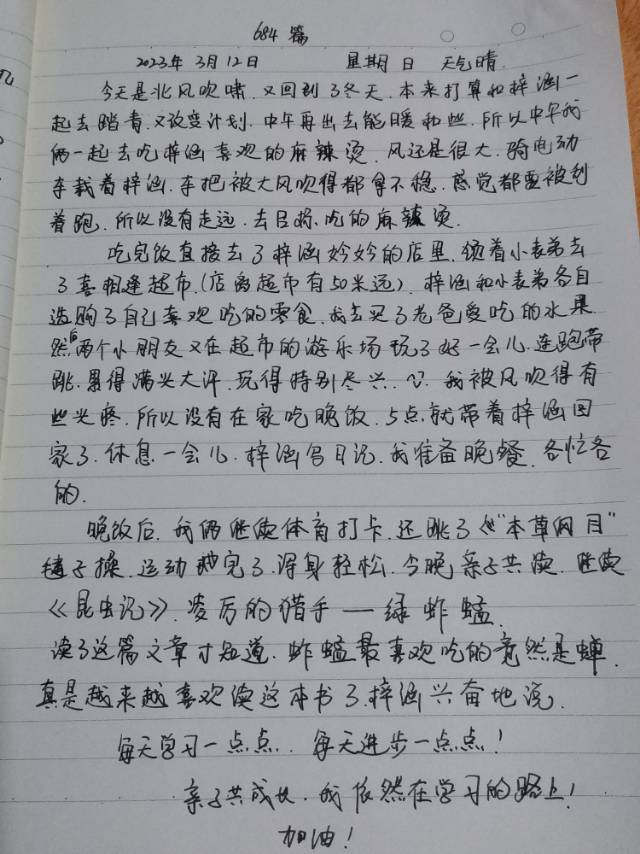 684篇
2023年3月12日 星期日 天气晴
今天是北风吹啸.又回到了冬天.本来打算和梓涵一
起去踏青.又改变计划.中午再出去能暖和些.所以中午我
俩一起去吃梓涵喜欢的麻辣烫.风还是很大.骑电动
车载着梓涵.车把被大风吹得都拿不稳.感觉都要被刮
着跑.所以没有走远.去吕将吃的麻辣烫.
吃完饭直接去了梓涵妗妗的店里.领着小表弟去
了喜相逢超市.(店离超市有50米远).梓涵和小表弟各自
选购了自己喜欢吃的零食.我去买了老爸爱吃的水果
然后两个小朋友又在超市的游乐场玩了好一会儿.连跑带
跳.累得满头大汗.玩得特别尽兴.我被风吹得有
些头疼.所以没有在家吃晚饭.5点就带着梓涵回
家了.休息一会儿.梓涵写日记.我准备晚餐.各忙各
的.
晚饭后.我俩继续体育打卡.还跳了"本草纲目"
毽子操.运动完了.浑身轻松.今晚亲子共读.继续
《昆虫记》.凌厉的猎手——绿蚱蜢.
读了这篇文章才知道.蚱蜢最喜欢吃的竟然是蝉.
真是越来越喜欢读这本书了.梓涵兴奋地说.
每天学习一点点.每天进步一点点!
亲子共成长.我依然在学习的路上!
加油!